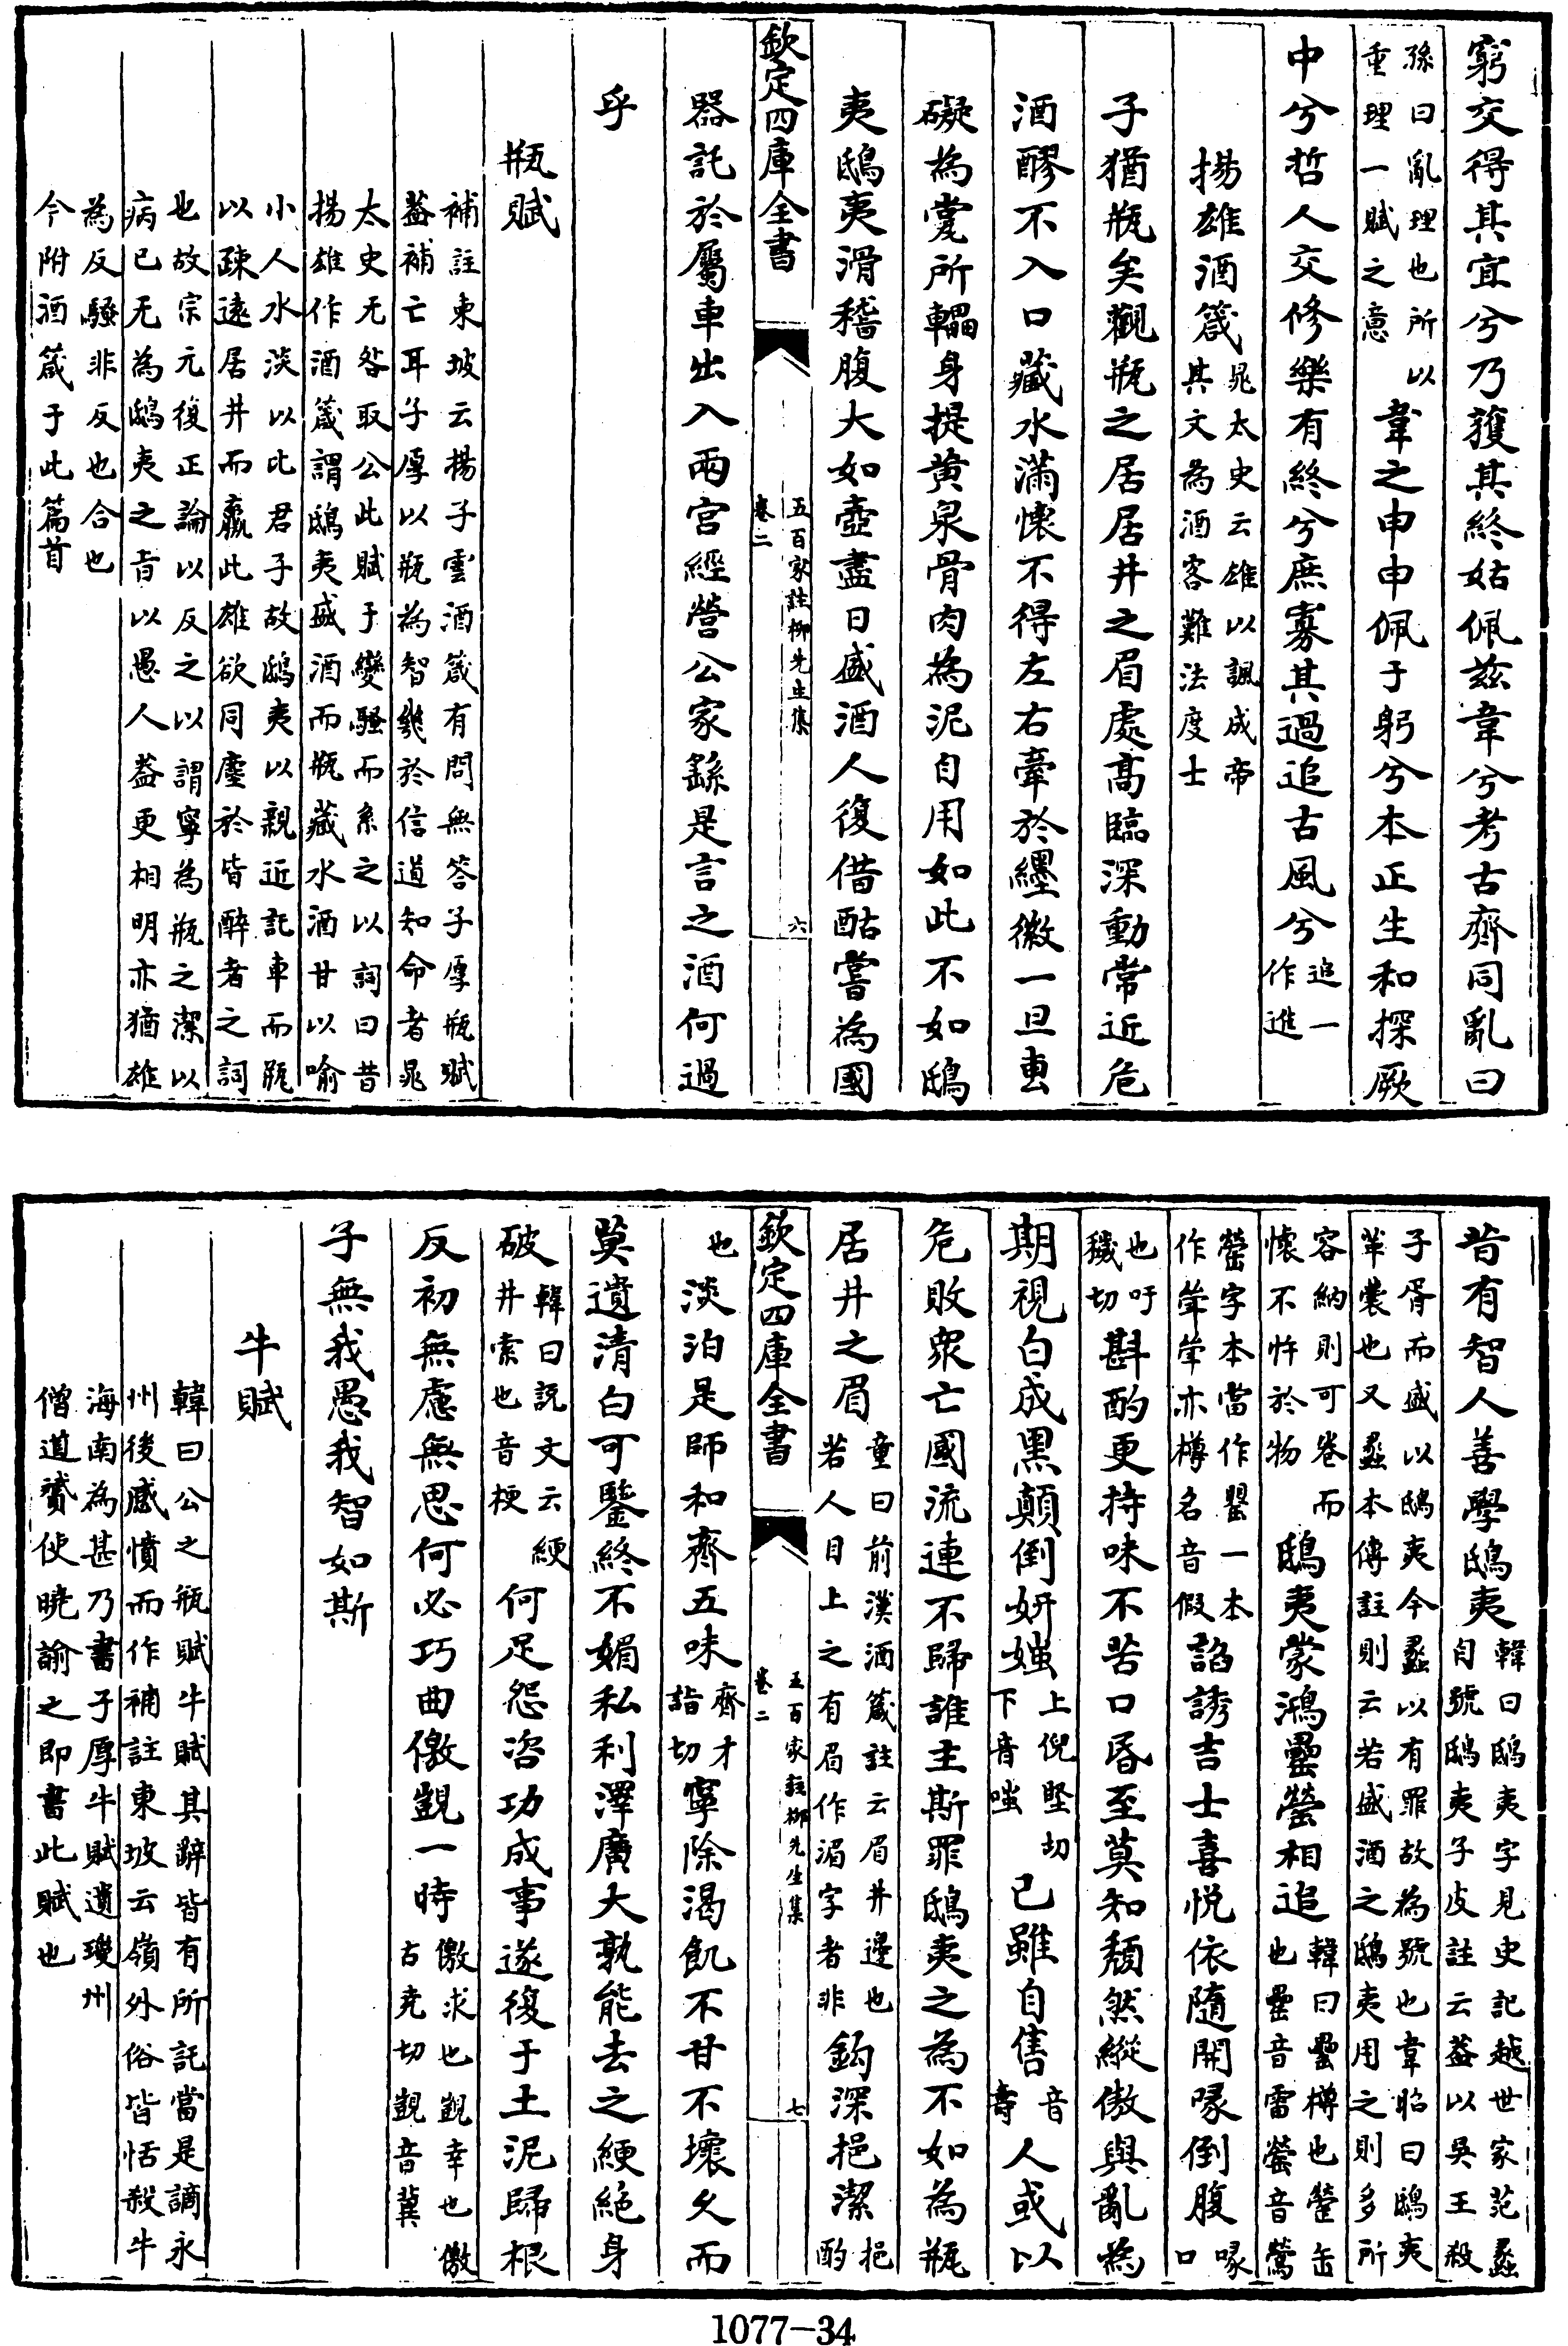 窮交得其宜兮乃獲其終姑佩兹韋兮考古齊同亂曰
孫曰亂理也所以
重理一賦之意
韋之申申佩于躬兮本正生和探厥
中兮哲人交修樂有終兮庶寡其過追古風兮
追一
作進
揚雄酒箴
晁太史云雄以諷成帝
其文為酒客難法度士
子猶瓶矣觀瓶之居居井之眉處髙臨深動常近危
酒醪不入口藏水滿懷不得左右牽於纆徽一旦叀
礙為㽀所轠身提黄泉骨肉為泥自用如此不如鴟
夷鴟夷滑稽腹大如壺盡日盛酒人復借酤嘗為國
欽定四庫全書
五百家註柳先生集
卷二
六
器託於屬車出入兩宫經營公家繇是言之酒何過
乎
瓶賦
補註東坡云揚子雲酒箴有問無答子厚瓶賦
葢補亡耳子厚以瓶為智幾於信道知命者晁
太史无咎取公此賦于變騷而系之以詞曰昔
揚雄作酒箴謂鴟夷盛酒而瓶藏水酒甘以喻
小人水淡以比君子故鴟夷以親近託車而瓶
以疎遠居井而羸此雄欲同塵於皆醉者之詞
也故宗元復正論以反之以謂寧為瓶之潔以
病已无為鴟夷之旨以愚人葢更相明亦猶雄
為反騷非反也合也
今附酒箴于此篇首
昔有智人善學鴟夷
韓曰鴟夷字見史記越世家范蠡
自號鴟夷子皮註云葢以吳王殺
子胥而盛以鴟夷今蠡以有罪故為號也韋昭曰鴟夷
革囊也又蠡本傳註則云若盛酒之鴟夷用之則多所
容納則可卷而
懷不忤於物
鴟夷蒙鴻罍罃相追
韓曰罍樽也罃缶
也罍音雷罃音鶯
罃字本當作罌一本
作斝斝亦樽名音假
諂誘吉士喜悦依隨開喙倒腹
喙
口
也吁
穢切
斟酌更持味不苦口昏至莫知頽然縱傲與亂為
期視白成黑顛倒妍媸
上倪堅切
下音嗤
已雖自售
音
夀
人或以
危敗衆亡國流連不歸誰主斯罪鴟夷之為不如為瓶
居井之眉
童曰前漢酒箴註云眉井邊也
若人目上之有眉作湄字者非
鈎深挹潔
挹
酌
欽定四庫全書
五百家註柳先生集
卷二
七
也
淡泊是師和齊五味
齊才
詣切
寧除渴飢不甘不壞久而
莫遺清白可鑒終不媚私利澤廣大孰能去之綆絶身
破
韓曰説文云綆
井索也音梗
何足怨咨功成事遂復于土泥歸根
反初無慮無思何必巧曲儌覬一時
儌求也覬幸也儌
古尭切覬音冀
子無我愚我智如斯
牛賦
韓曰公之瓶賦牛賦其辭皆有所託當是謫永
州後感憤而作補註東坡云嶺外俗皆恬殺牛
海南為甚乃書子厚牛賦遺瓊州
僧道贇使曉諭之即書此賦也
1077-34